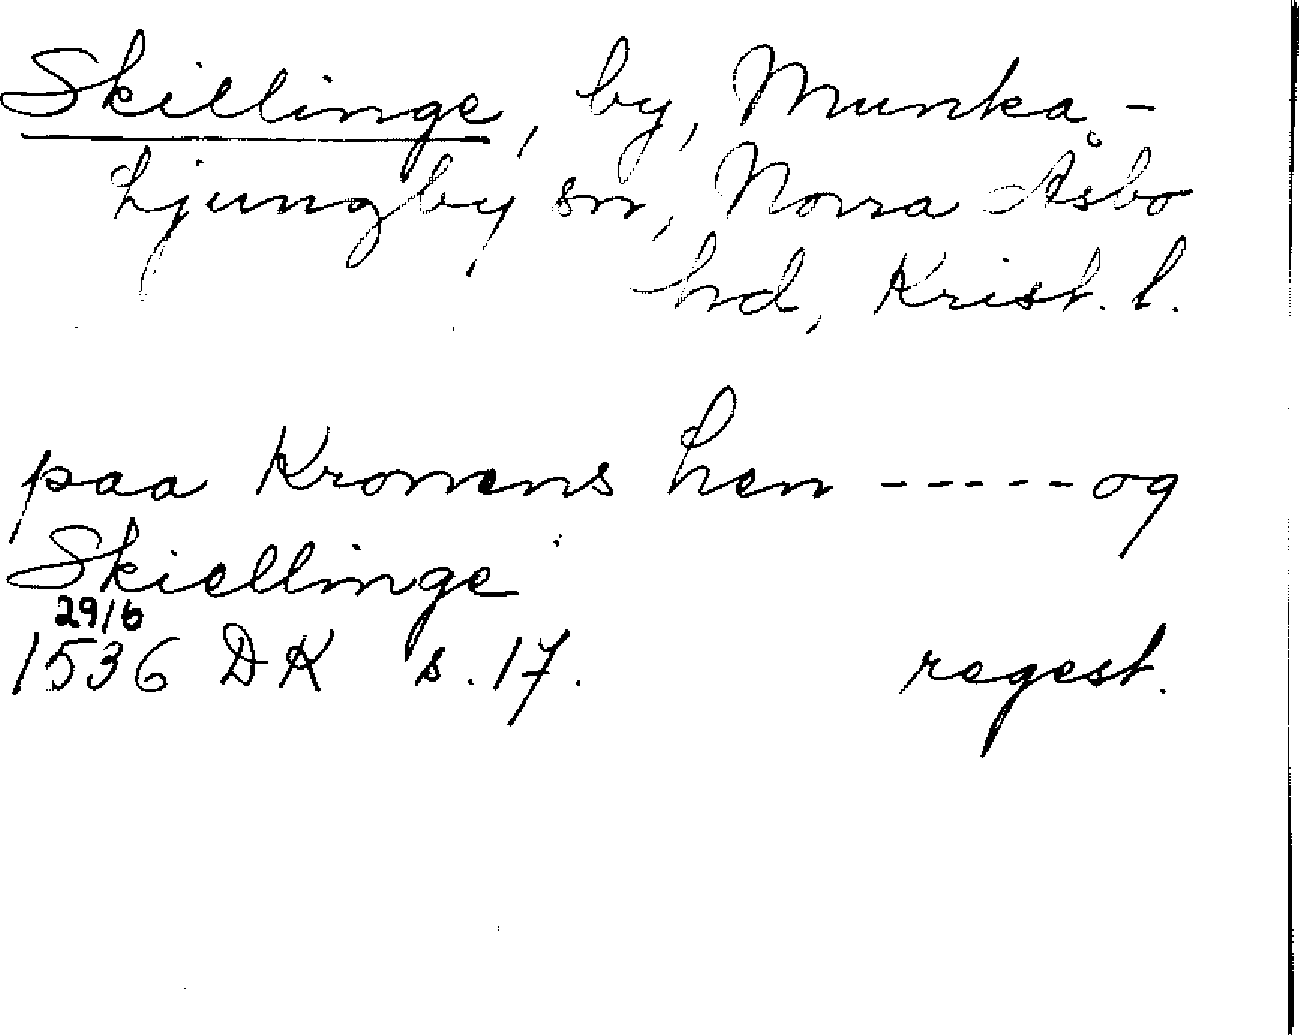 Skillinge, by, Munka-
Ljungby sn, Norra Åsbo
hd, Krist. l.
paa Kronens Len ----- og
Skiellinge
29/6
1536 DK s. 17. regest.